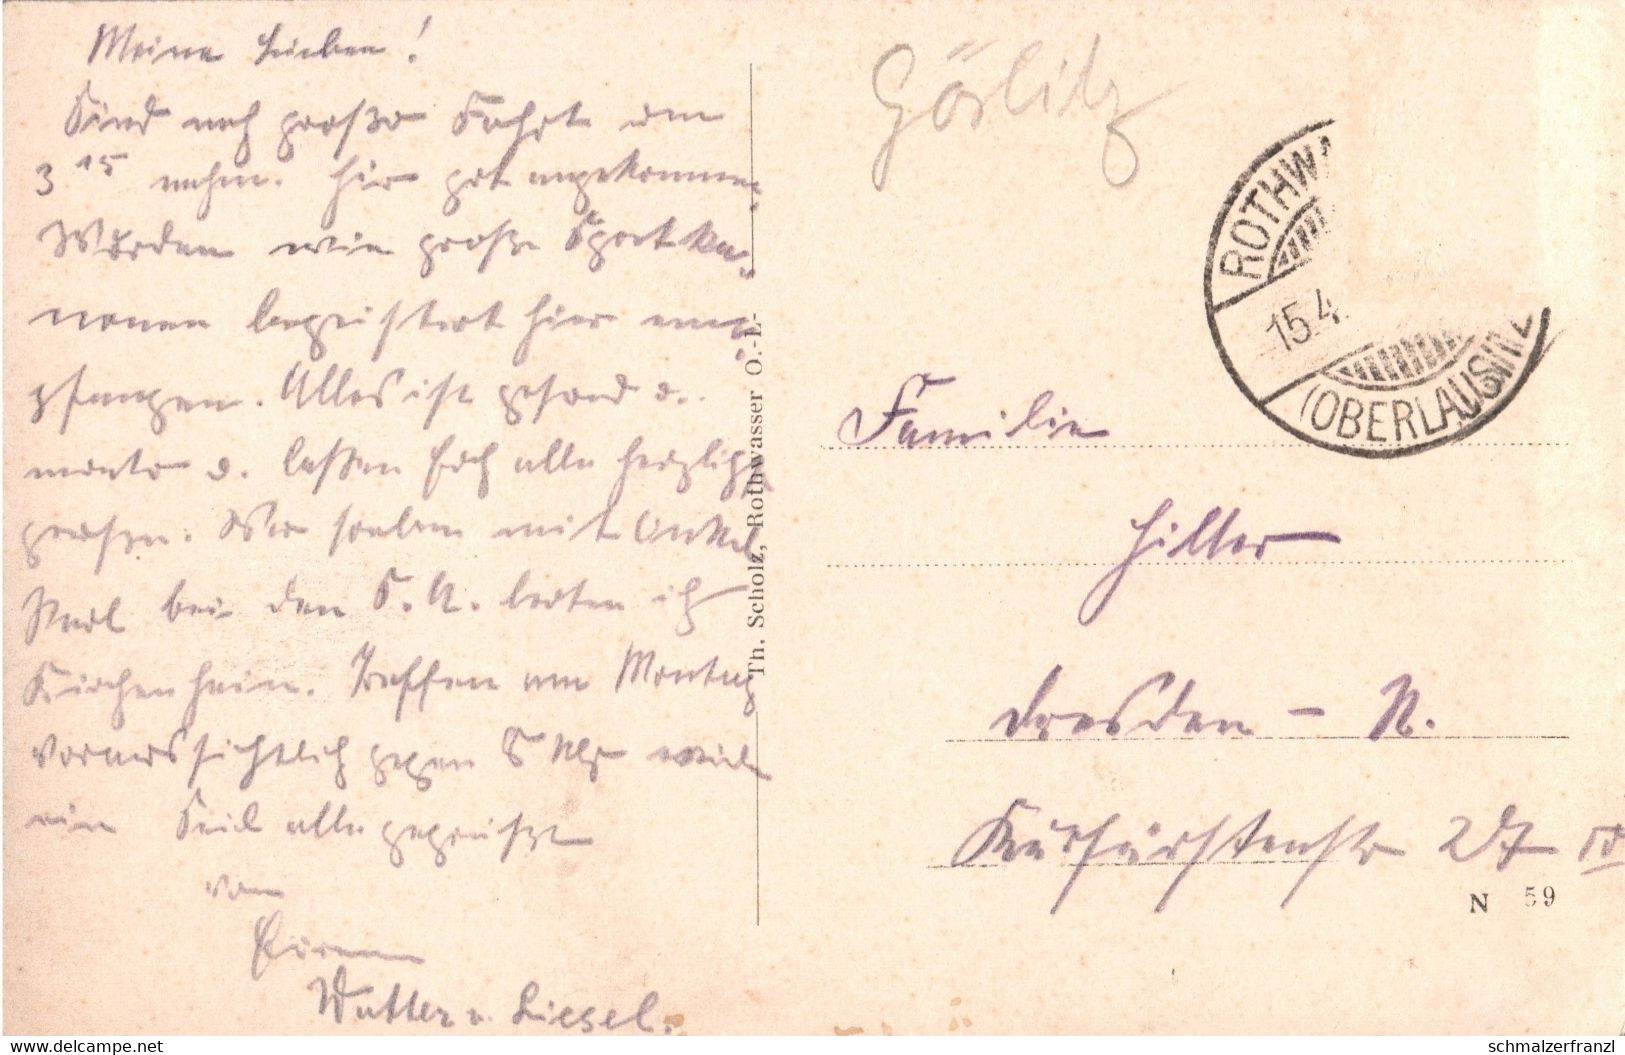 Meine Lieben!
Sind nach großer Fahrt um
3 15 nachm. hier gut angekommen.
Wurden wie große Sportka-
nonen begeistert hier em-
pfangen. Alles ist gesund u.
munter u. lassen Euch alle herzlich
grüßen. Wir haben mit Onkel
Karl bei den
Treffen am Montag
voraussichtlich gegen 8 Uhr
ein Seid alle gegrüßt
von
Euren
Walter u. Liesel.
Th. Scholz, Rothwasser O.-L.
Görlitz
ROTHWA
15.4.
(OBERLAUSITZ
Familie
Hiller
Dresden - N.
Kurfürstenstr 27 III
N 59
© www.delcampe.net
schmalzerfranzl